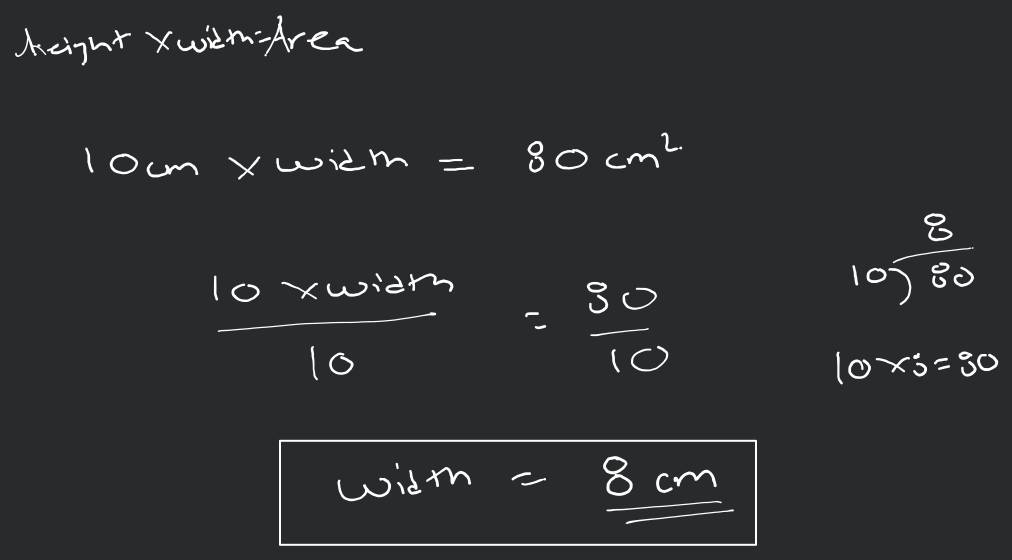 height × width = Area
10cm × width = 80 cm²
10 × width / 10 = 80 / 10
8
10) 80
10×8=80
width = 8 cm